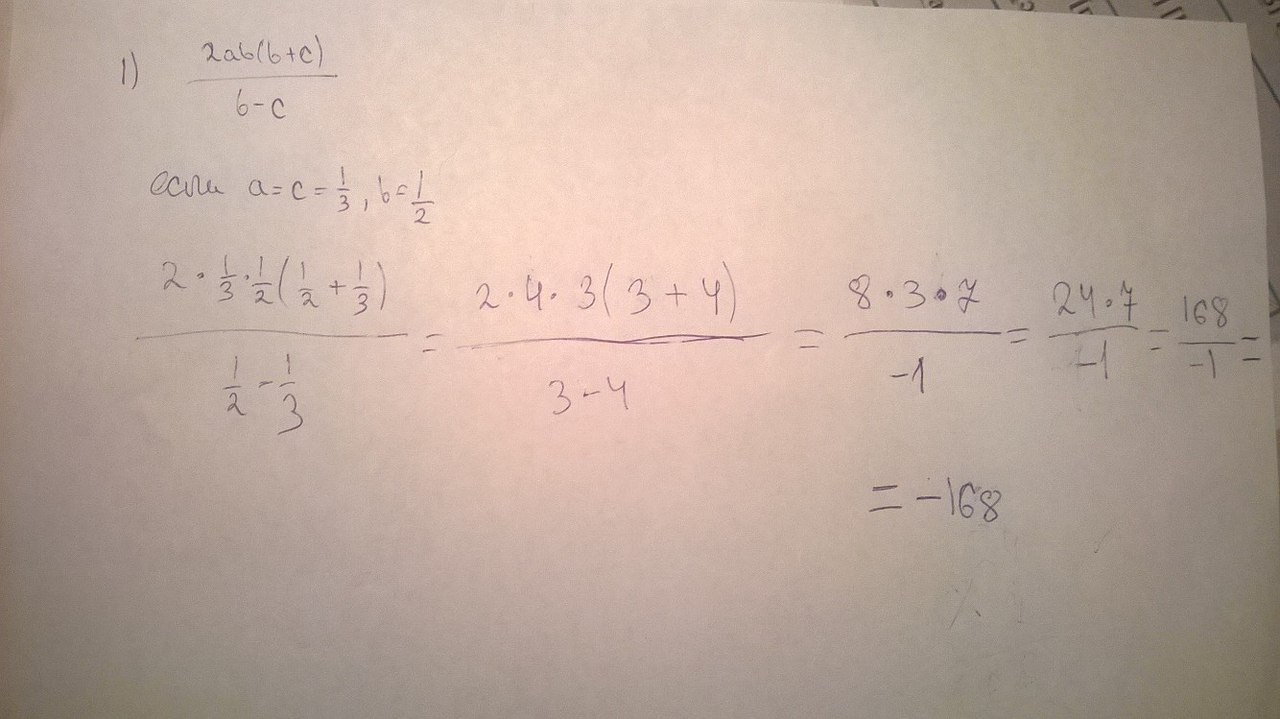 1) 2ab(b+c) / b-c
если a=c=1/3, b=1/2
2·1/3·1/2(1/2+1/3) / 1/2-1/3 = 2·4·3(3+4) / 3-4 = 8·3·7 / -1 = 24·7 / -1 = 168 / -1 =
= -168